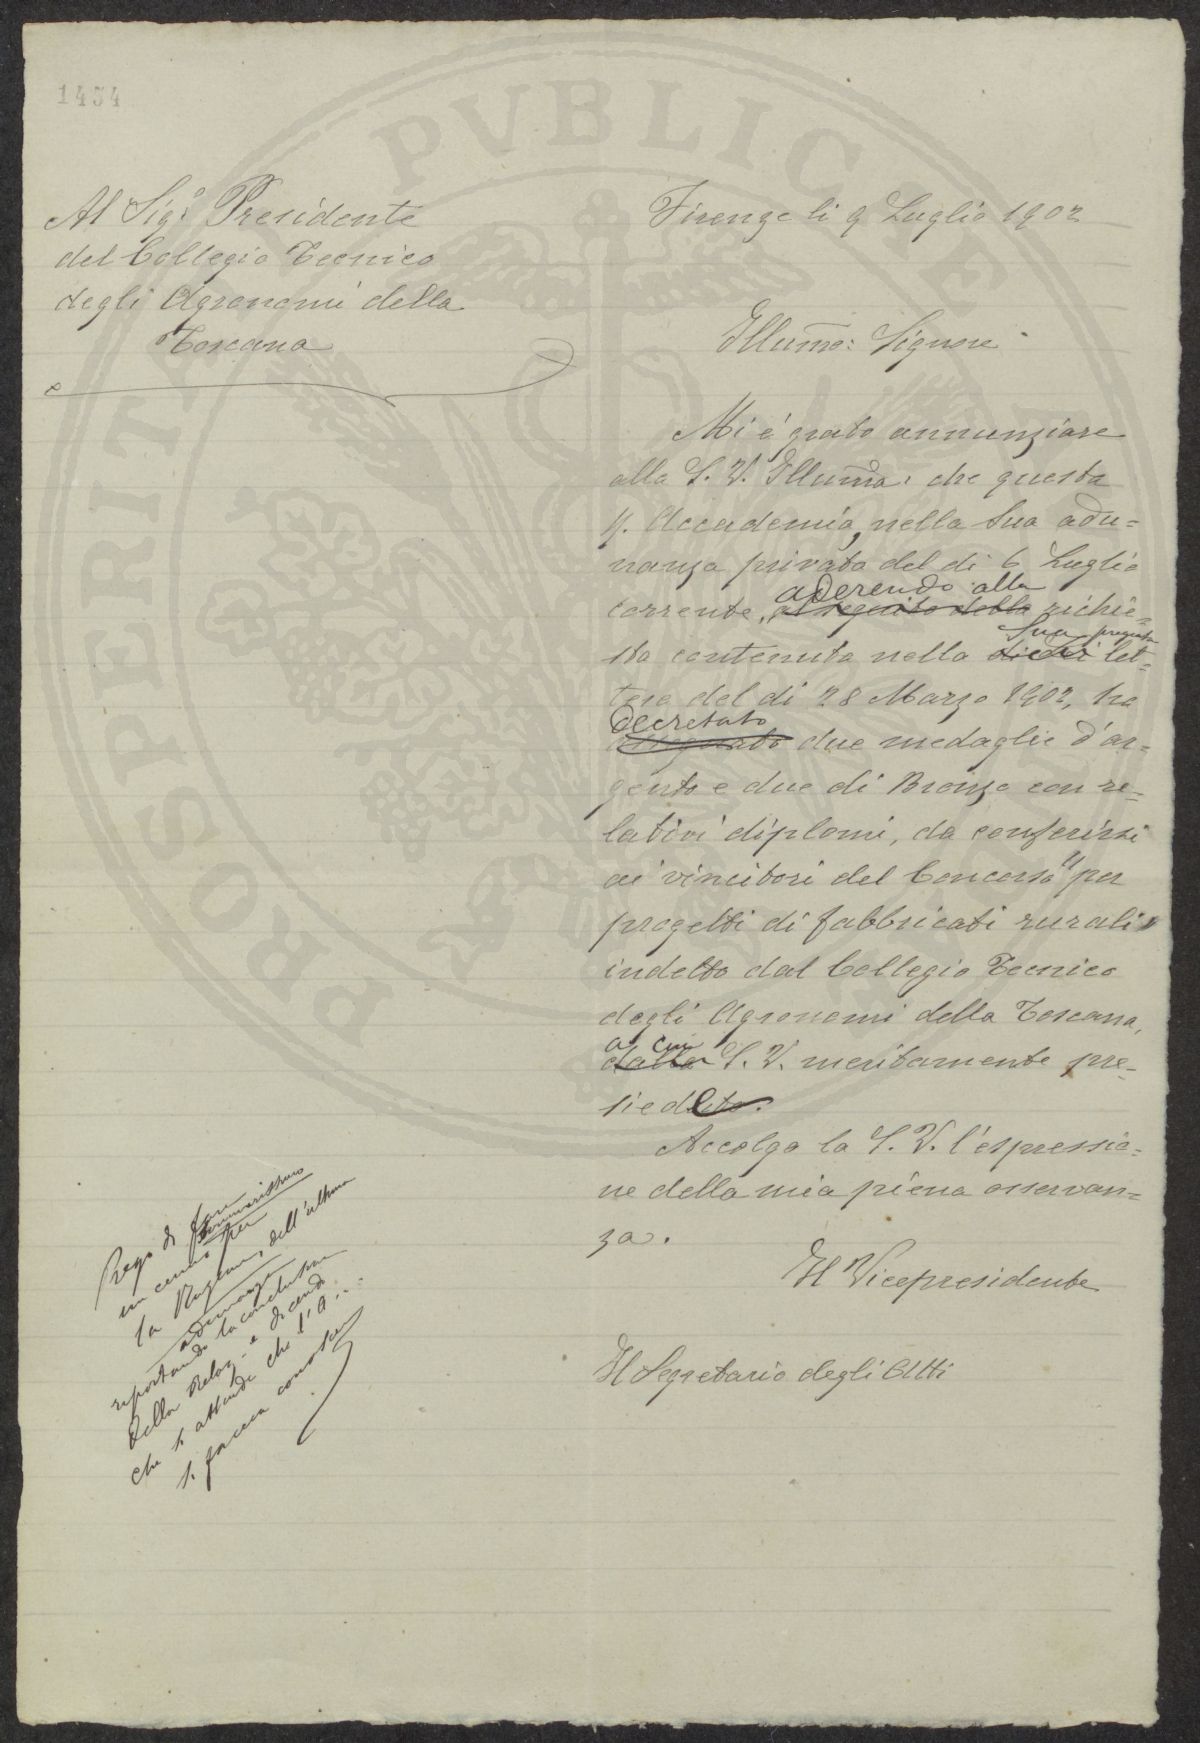 1434
PROSPERITATI PVBLICAE
Al Sigr. Presidente
del Collegio Tecnico
degli Agronomi della
Toscana
Firenze li 9 Luglio 1902
Illumo: Signore
Mi è grato annunziare
alla S. V. Illuma. che questa
R. Accademia, nella sua adu=
nanza privata del dì 6 Luglio
aderendo alla
corrente, al seguito della richie=
Sua pregiata
sta contenuta nella di Lei let=
tera del dì 28 Marzo 1902, ha
decretato
assegnato due medaglie d'ar=
gento e due di Bronzo con re=
lativi diplomi, da conferirsi
ai vincitori del Concorso "per
progetti di fabbricati rurali"
indetto dal Collegio Tecnico
degli Agronomi della Toscana,
a cui
dalla S. V. meritamente pre=
siede.
Accolga la S. V. l'espressio=
ne della mia piena osservan=
za.
Il Vicepresidente
Il Segretario degli Atti
Prego di fare
un cenno sommarissimo
per
la dell'ultima
adunanza
riportando la conclusione
della Relaz. e dicendo
che si attende che l'A...
si faccia conoscere